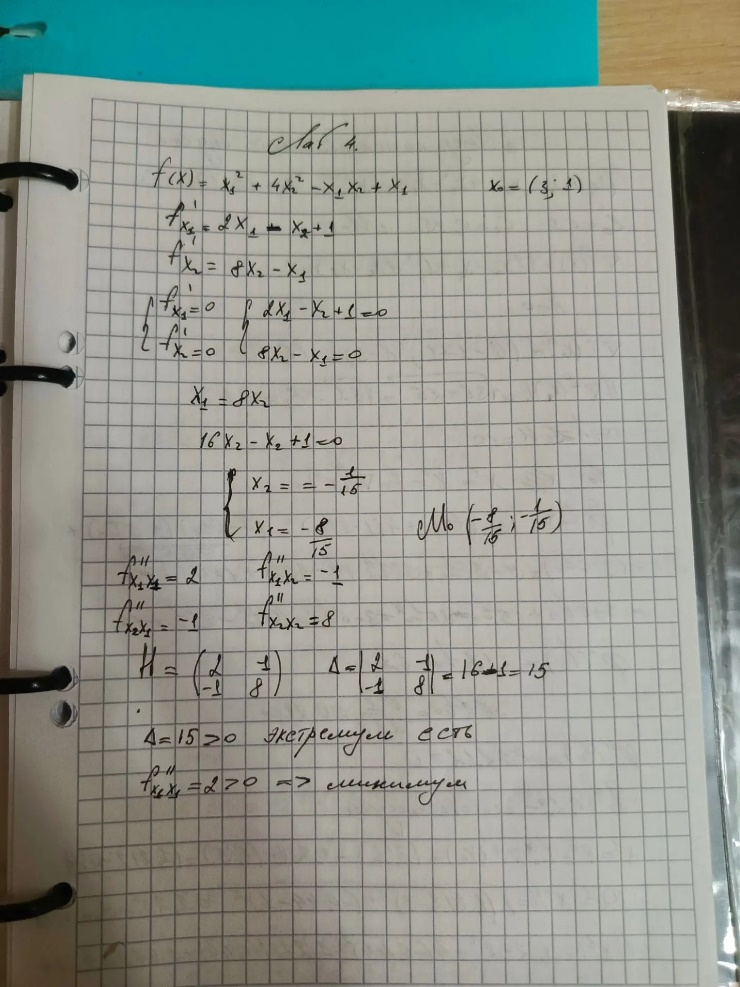 Лаб 4.
f(x) = x₁² + 4x₂² - x₁x₂ + x₁ x₀ = (3; 1)
f'x₁ = 2x₁ - x₂ + 1
f'x₂ = 8x₂ - x₁
{ f'x₁ = 0 { 2x₁ - x₂ + 1 = 0
{ f'x₂ = 0 { 8x₂ - x₁ = 0
x₁ = 8x₂
16x₂ - x₂ + 1 = 0
{ x₂ = = -1/15
{ x₁ = -8/15 M₀ (-8/15; -1/15)
f''x₁x₁ = 2 f''x₁x₂ = -1
f''x₂x₁ = -1 f''x₂x₂ = 8
H = (2 -1
-1 8) Δ = |2 -1
-1 8| = 16 - 1 = 15
Δ = 15 > 0 экстремум есть
f''x₁x₁ = 2 > 0 => минимум